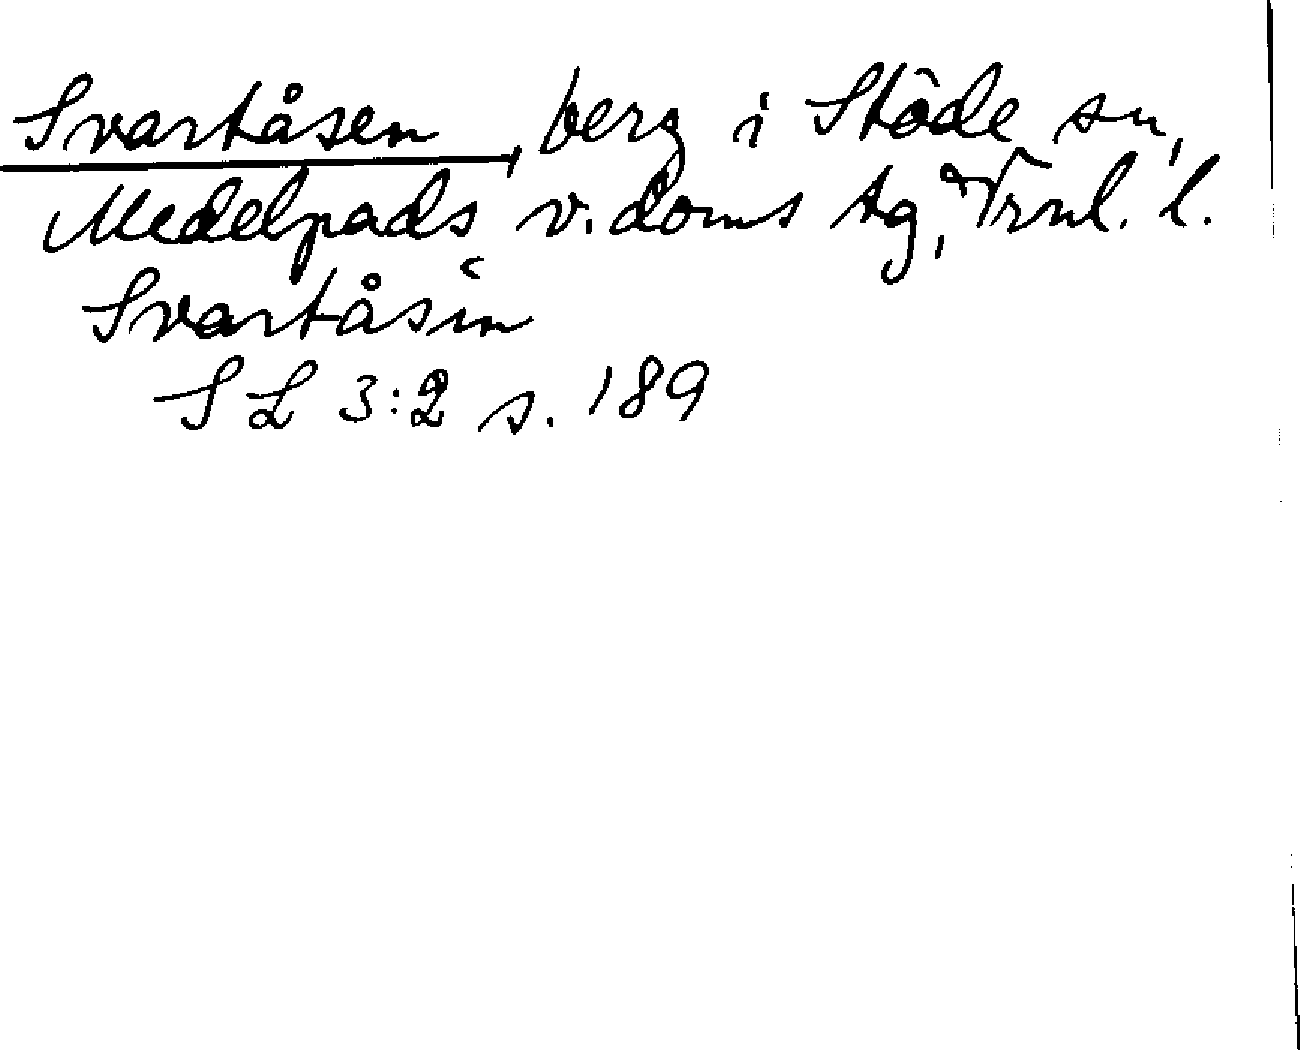 Svartåsen, berg i Stöde sn,
Medelpads v. doms tg, Vrnl. l.
Svartåsin
SL 3:2 s. 189